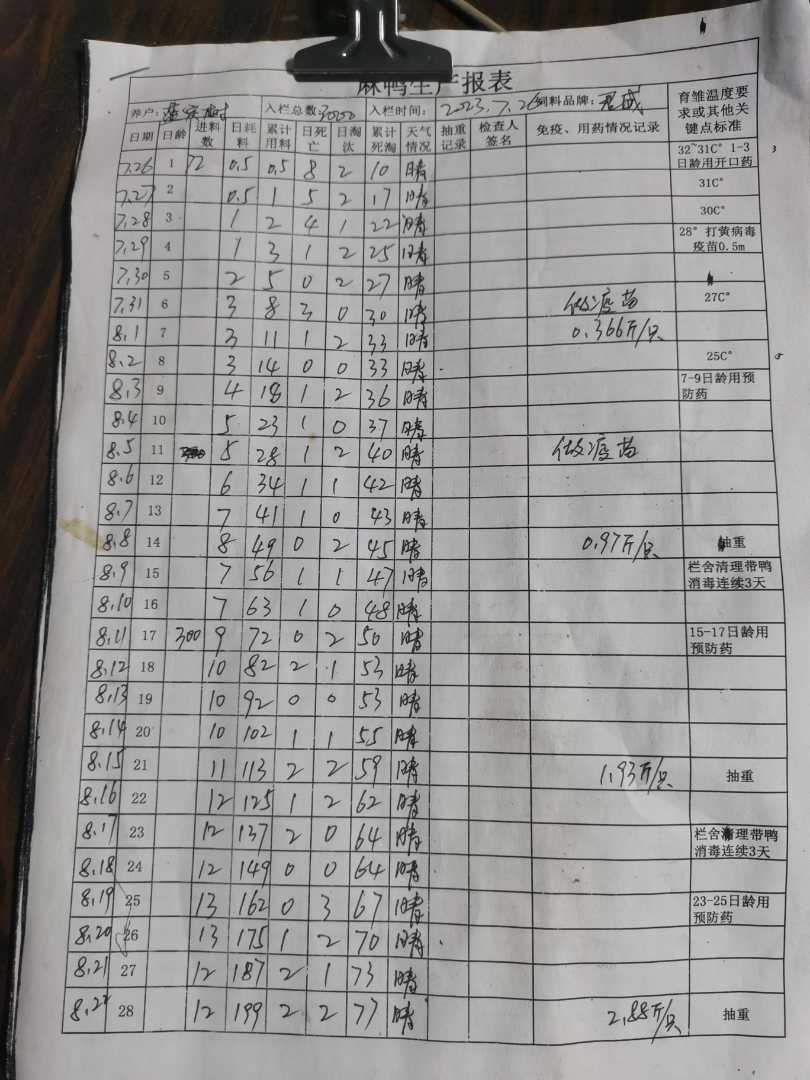 麻鸭生产报表
养户: 入栏总数:3000 入栏时间: 2023.7.26 饲料品牌: 育雏温度要求或其他关键点标准
日期 日龄 进料数 日耗料 累计用料 日死亡 日淘汰 累计死淘 天气情况 抽重记录 检查人签名 免疫、用药情况记录
7.26 1 72 0.5 0.5 8 2 10 晴 32~31C° 1-3日龄用开口药
7.27 2 0.5 1 5 2 17 晴 31C°
7.28 3 1 2 4 1 22 晴 30C°
7.29 4 1 3 1 2 25 晴 28° 打黄病毒疫苗0.5m
7.30 5 2 5 0 2 27 晴
7.31 6 3 8 3 0 30 晴 做疫苗 27C°
8.1 7 3 11 1 2 33 晴 0.366斤/只
8.2 8 3 14 0 0 33 晴 25C°
8.3 9 4 18 1 2 36 晴 7-9日龄用预防药
8.4 10 5 23 1 0 37 晴
8.5 11 5 28 1 2 40 晴 做疫苗
8.6 12 6 34 1 1 42 晴
8.7 13 7 41 1 0 43 晴
8.8 14 8 49 0 2 45 晴 0.97斤/只 抽重
8.9 15 7 56 1 1 47 晴 栏舍清理带鸭消毒连续3天
8.10 16 7 63 1 0 48 晴
8.11 17 300 9 72 0 2 50 晴 15-17日龄用预防药
8.12 18 10 82 2 1 53 晴
8.13 19 10 92 0 0 53 晴
8.14 20 10 102 1 1 55 晴
8.15 21 11 113 2 2 59 晴 1.93斤/只 抽重
8.16 22 12 125 1 2 62 晴
8.17 23 12 137 2 0 64 晴 栏舍清理带鸭消毒连续3天
8.18 24 12 149 0 0 64 晴
8.19 25 13 162 0 3 67 晴 23-25日龄用预防药
8.20 26 13 175 1 2 70 晴
8.21 27 12 187 2 1 73 晴
8.22 28 12 199 2 2 77 晴 2.88斤/只 抽重